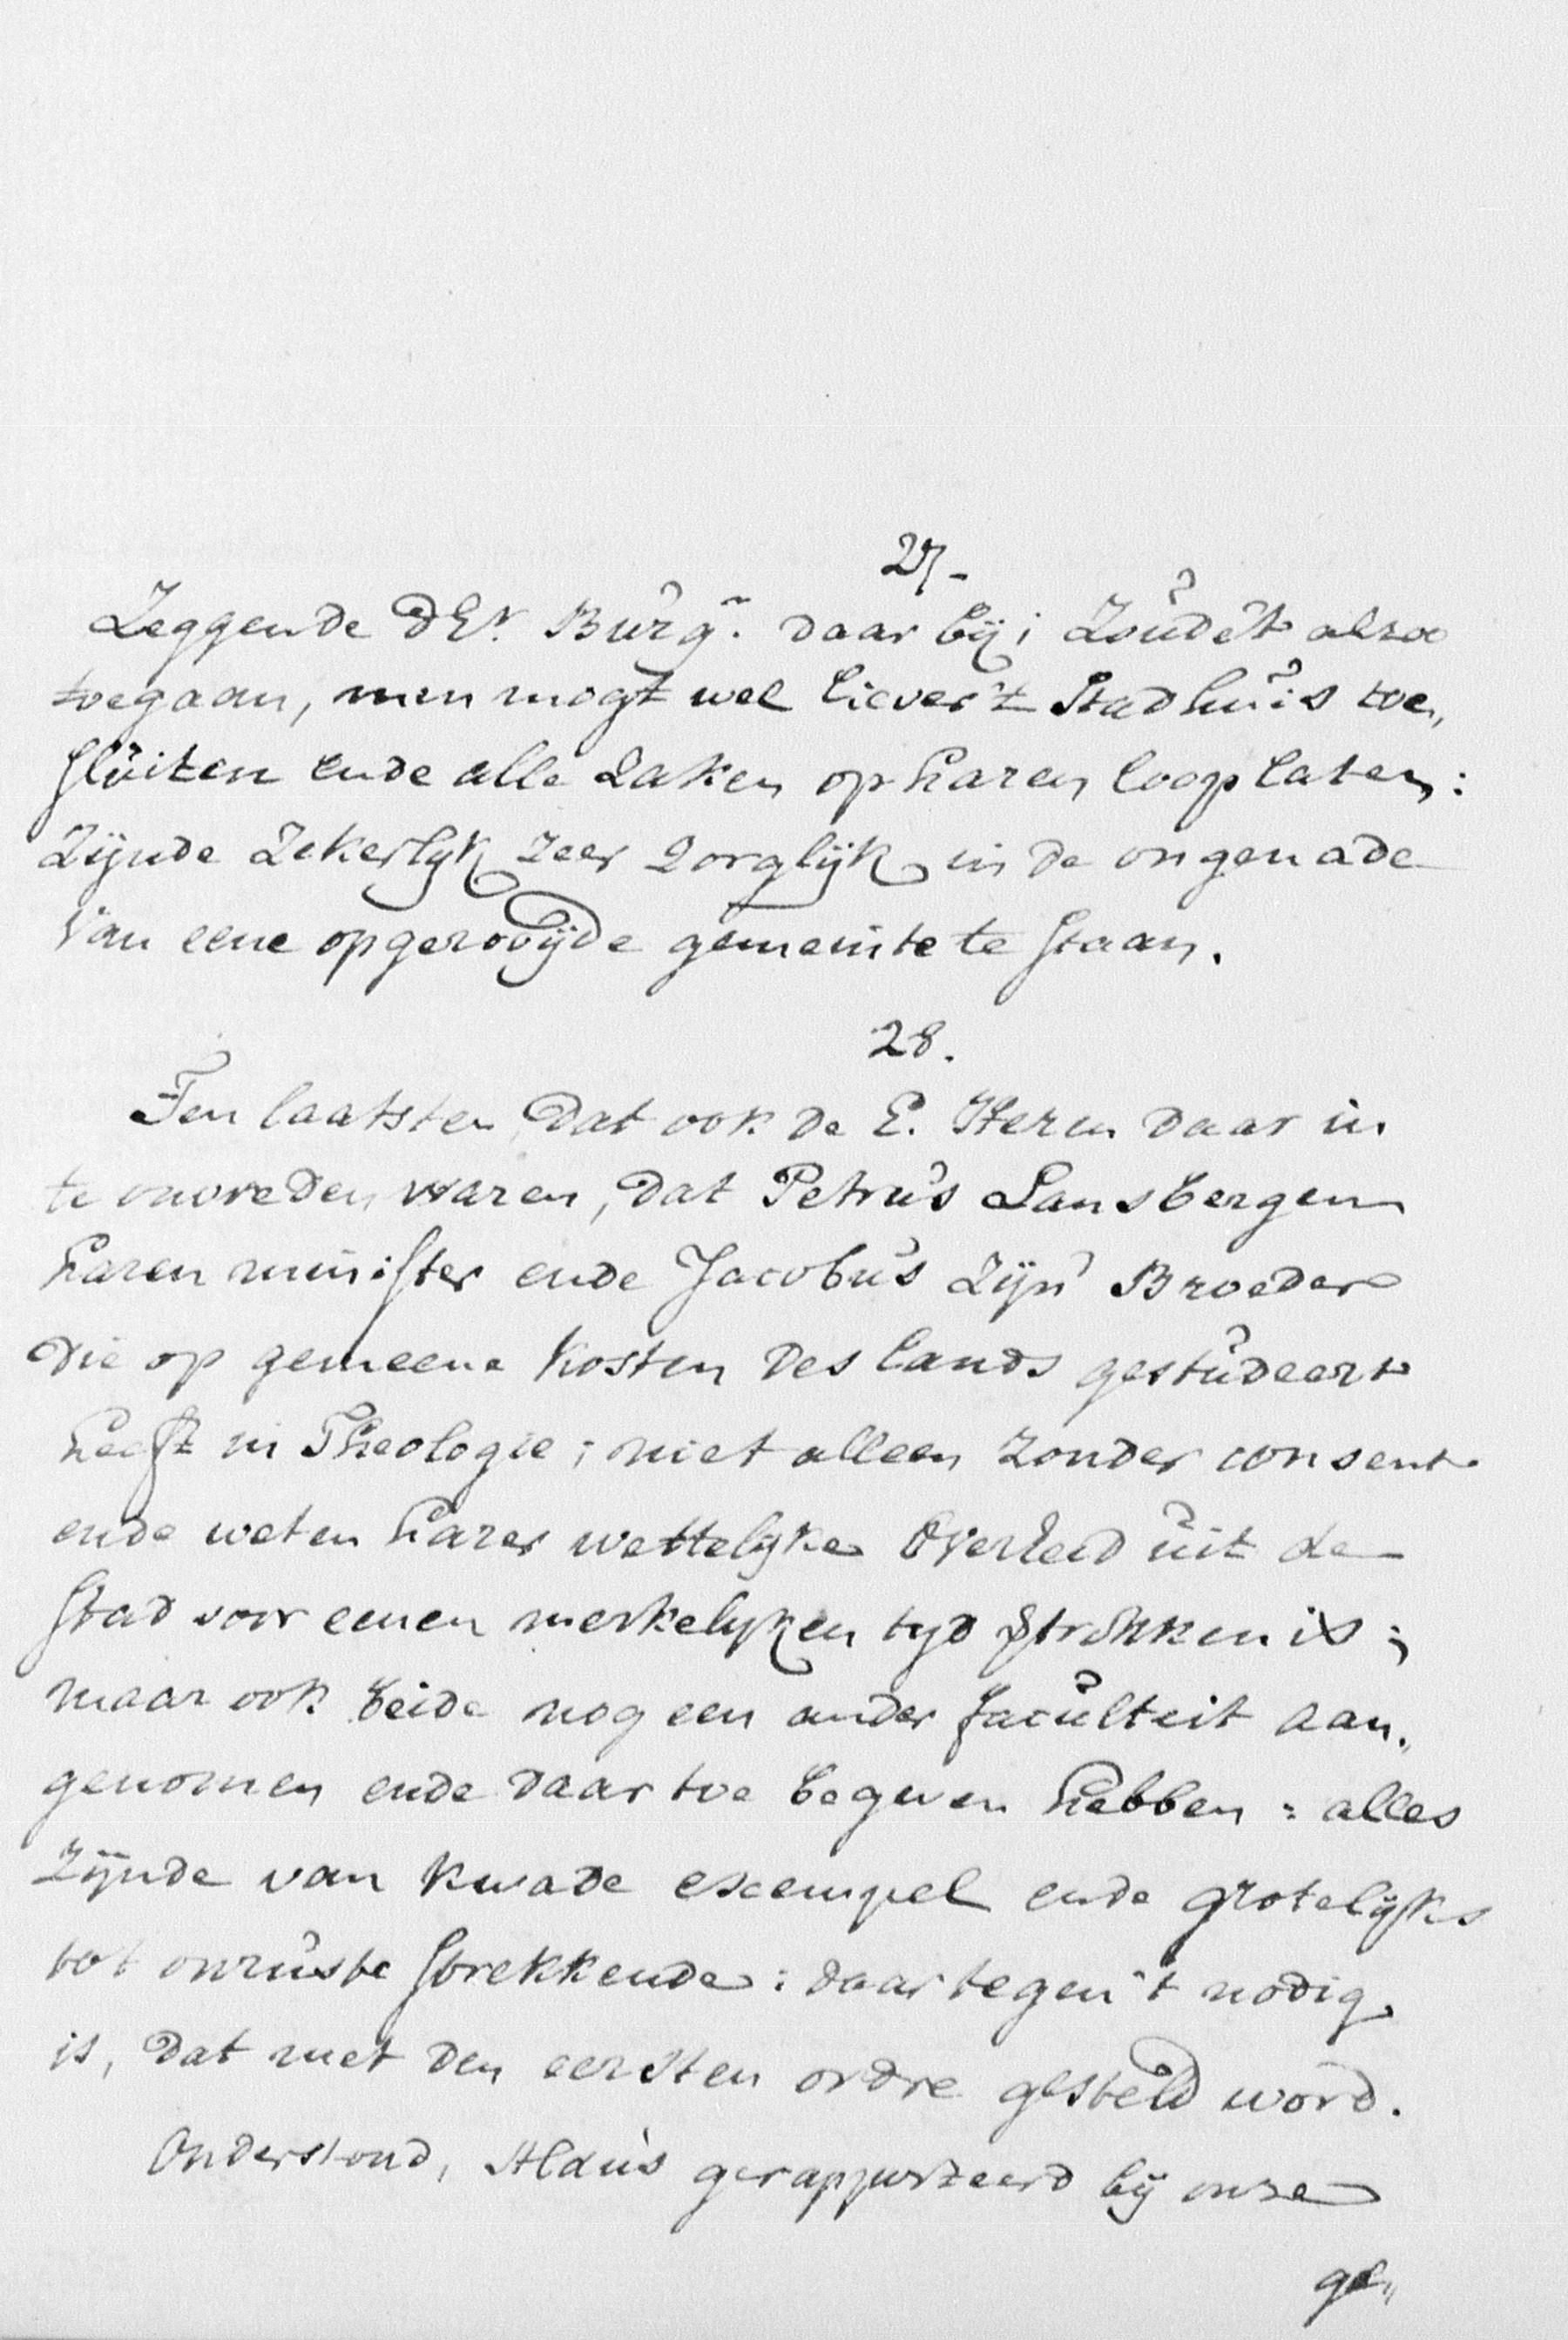 27.
Zeggende dEr. Burgr. daar bij; Zoudet alzoo
toegaan, men mogt wel liever 't Stadhuis toe„
sluiten ende alle Zaken op haren loop laten:
Zijnde Zekerlijk zeer Zorglijk in de ongenade
van eene opgerooijde gemeinte te staan.
28.
Ten laatsten, dat ook de E. Heren daar in
te onvreden waren, dat Petrus Lansbergen
haren minister ende Jacobus Zijn Broeder
die op gemeene Kosten des lands gestudeert
heeft in Theologie; niet alleen Zonder consent
ende weten harer wettelyke Overheid uit de
Stad voor eenen merkelyken tyd vertrokken is;
maar ook beide nog een ander faculteit aan„
genomen ende daar toe begeven hebben: alles
Zijnde van kwade exempel ende grotelijks
tot onruste strekkende: daar tegen 't nodig
is, dat met den eersten ordre gesteld word.
Onderstond, Aldus gerapporteerd bij onze
ge„